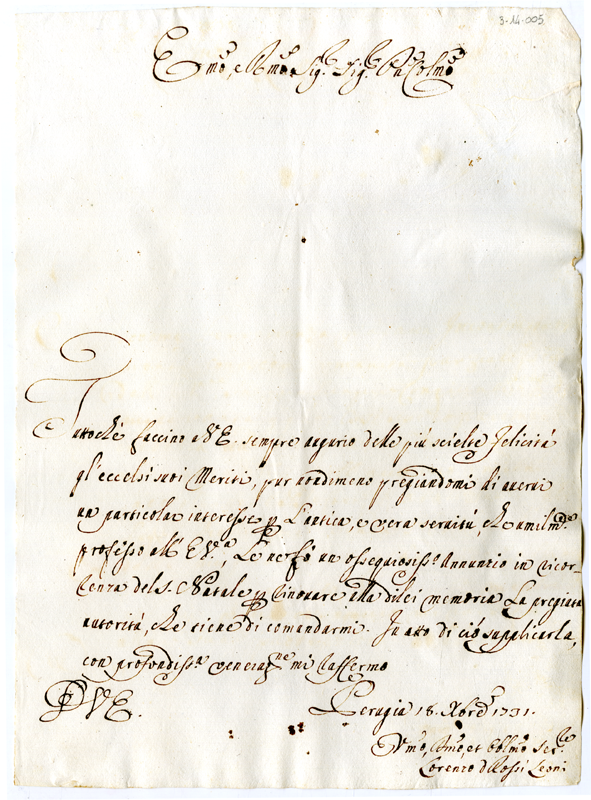 3-14-005
E.mo, e R.mo Sig.r Sig.r P.ne Colmo
Tuttoché faccino a V.E. sempre augurio delle più scielte felicità
gl'eccelsi suoi Meriti, pur nondimeno pregiandomi di avervi
un particolar interesse p l'antica, e vera servitù, che umilm.te
professo all' E.V.a, Le ne fò un ossequiosiss.o Annunzio in ricor-
renza del S. Natale p rinovare alla di lei memoria la pregiata
autorità, che tiene di comandarmi. In atto di ciò supplicarla,
con profondiss.a veneraz.ne mi raffermo
D V E.
Perugia 18. Xbre 1731.
Vmo, Dmo, et Obblmo Ser.re
Lorenzo de Rossi Leoni